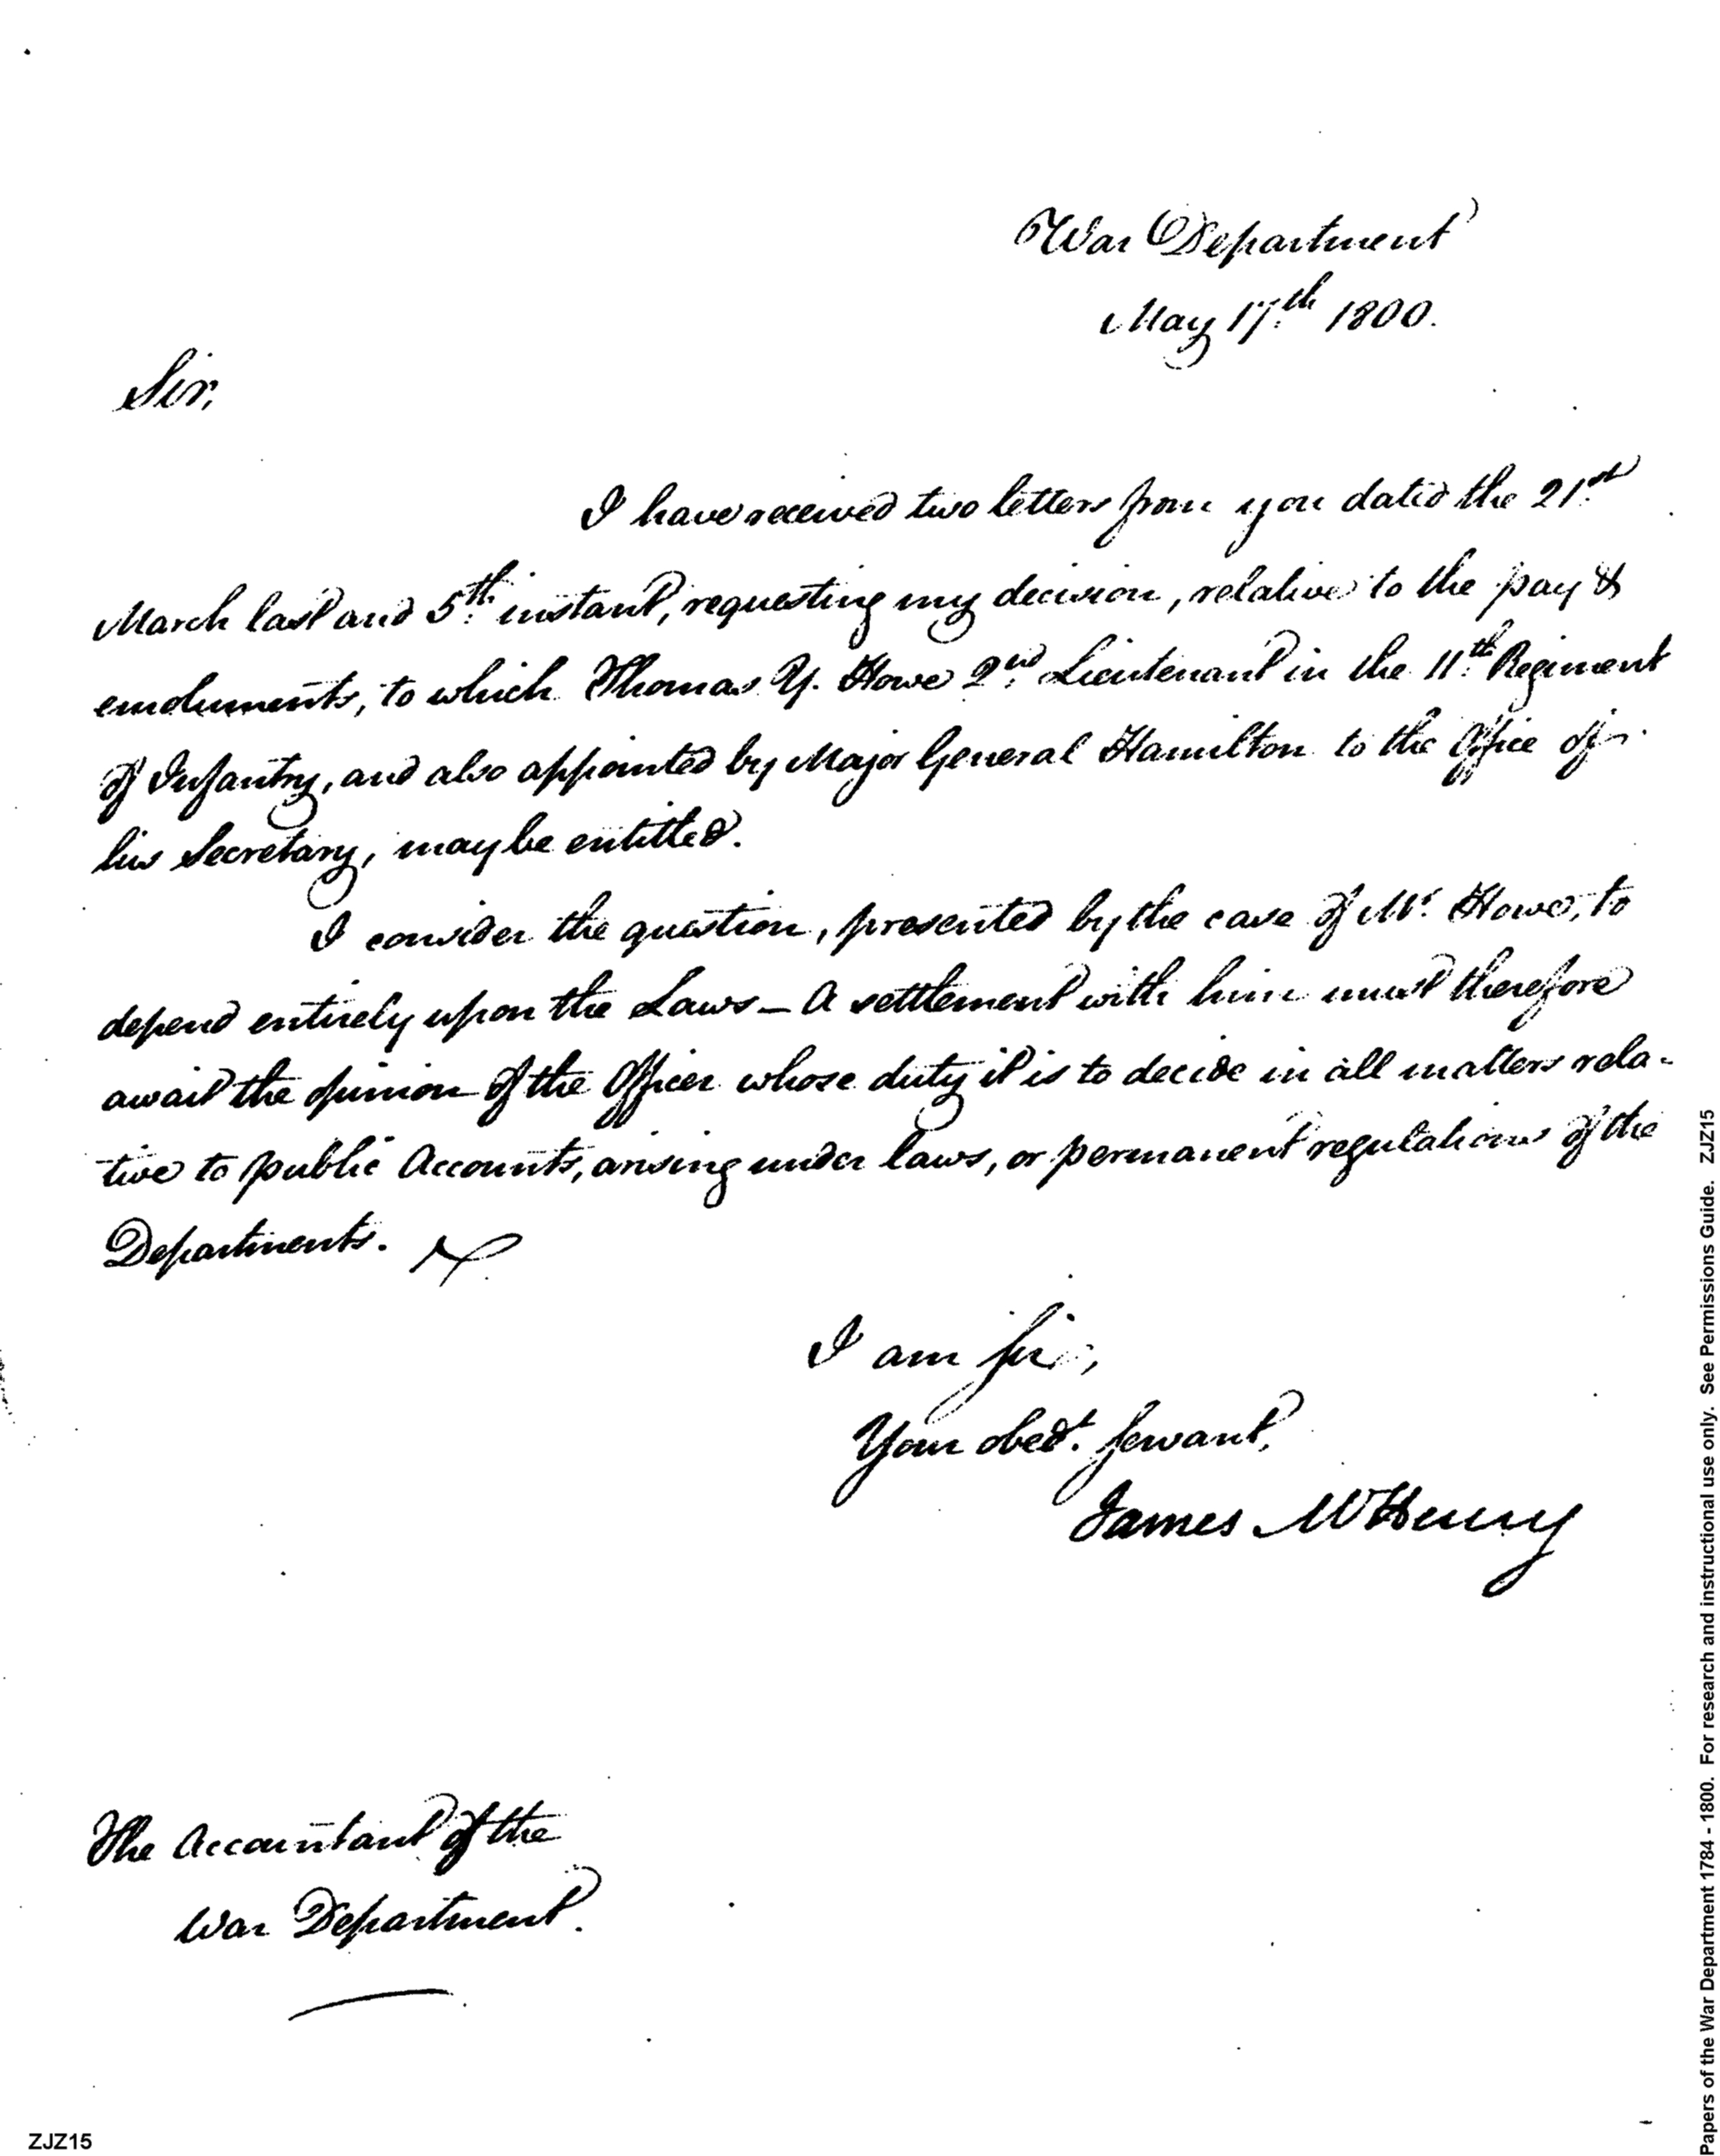 War Department
May 17th 1800.
Sir,
I have received two letters from you dated the 21st
March last and 5th instant, requesting my decision, relative to the pay &
emoluments, to which Thomas Y. Howe 2nd Lieutenant in the 11th Regiment
of Infantry, and also appointed by Major General Hamilton to the Office of
his Secretary, may be entitled.
I consider the question, presented by the case of Mr. Howe, to
depend entirely upon the Laws – A settlement with him must therefore
await the opinion of the Officer whose duty it is to decide in all matters rela-
tive to public Accounts, arising under laws, or permanent regulations of the
Departments.
I am Sir,
Your obedt. Servant,
James McHenry
The Accountant of the
War Department.
ZJZ15
Papers of the War Department 1784 - 1800. For research and instructional use only. See Permissions Guide. ZJZ15